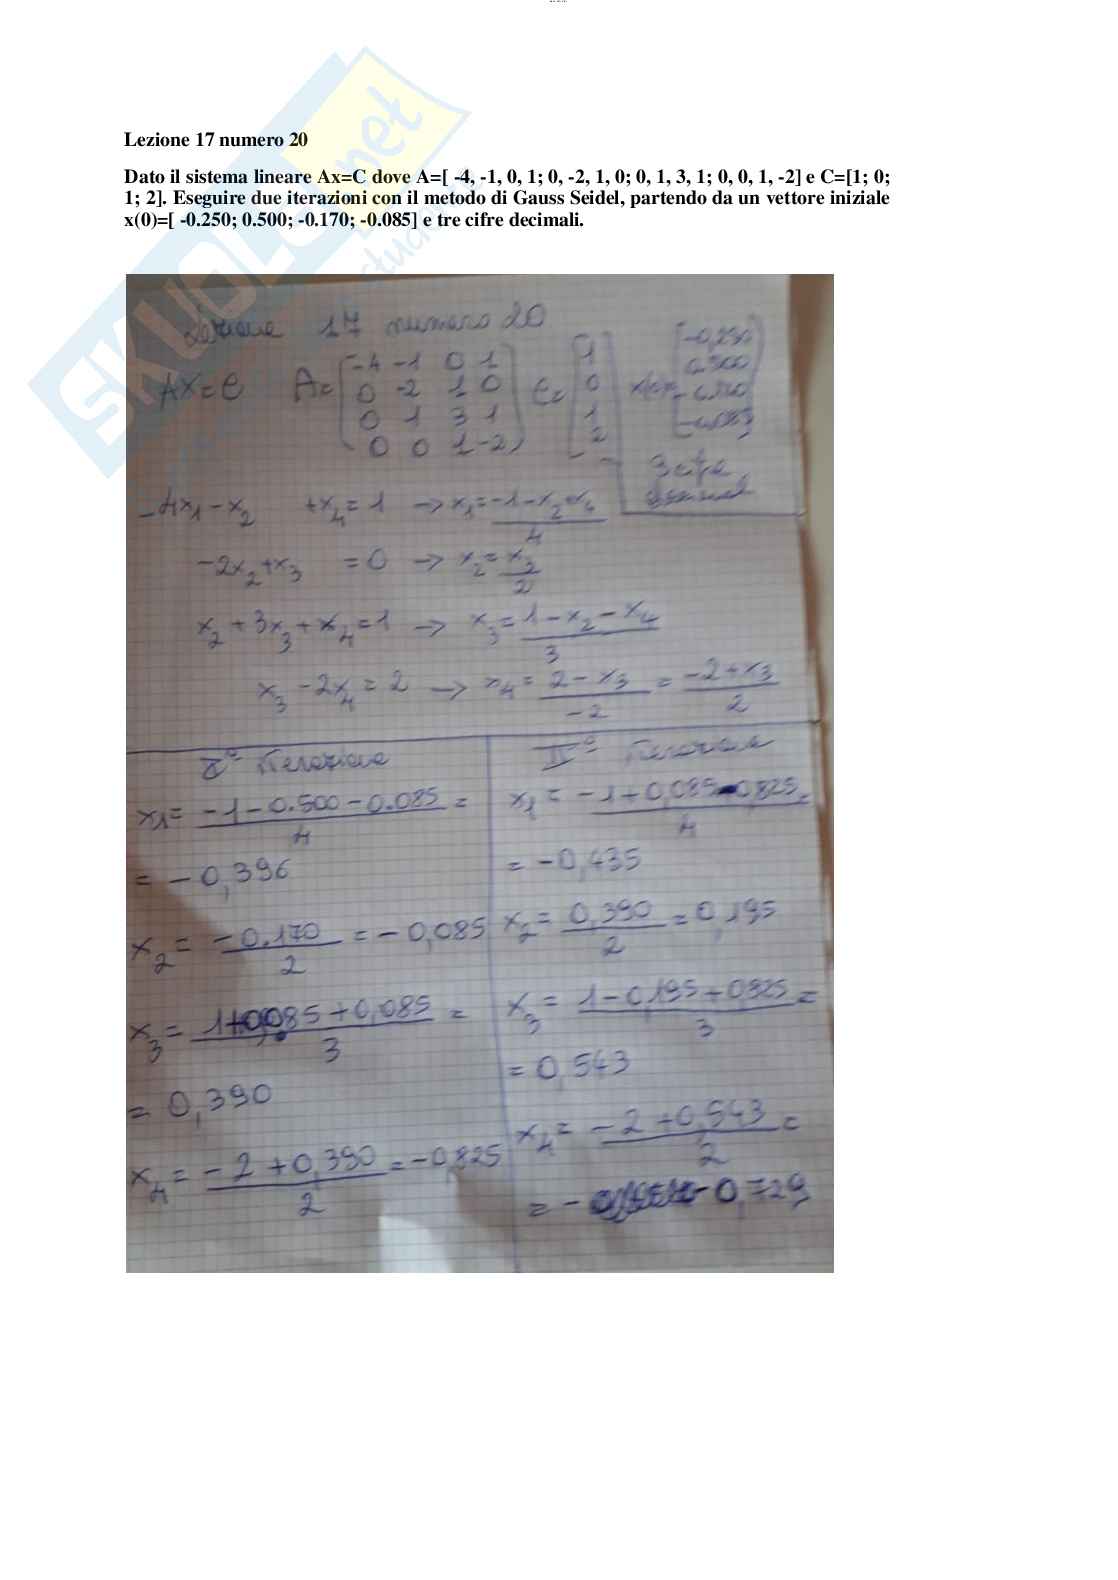 Lezione 17 numero 20
Dato il sistema lineare Ax=C dove A=[ -4, -1, 0, 1; 0, -2, 1, 0; 0, 1, 3, 1; 0, 0, 1, -2] e C=[1; 0;
1; 2]. Eseguire due iterazioni con il metodo di Gauss Seidel, partendo da un vettore iniziale
x(0)=[ -0.250; 0.500; -0.170; -0.085] e tre cifre decimali.
SKUOLA.net
Lezione 17 numero 20
AX=C A= [-4 -1 0 1
0 -2 1 0
0 1 3 1
0 0 1 -2] C= [1 0 1 2]
3 cifre
-4x1 - x2 +x4 = 1 → x1 = -1-x2+x4 / 4
-2x2+x3 = 0 → x2 = x3 / 2
x2 + 3x3 + x4 = 1 → x3 = 1-x2-x4 / 3
x3 - 2x4 = 2 → x4 = 2-x3 / -2 = -2+x3 / 2
Iª iterazione
x1 = -1-0.500-0.085 / 4 =
= -0,396
x2 = -0.170 / 2 = -0,085
x3 = 1+0,085+0,085 / 3 =
= 0,390
x4 = -2+0,390 / 2 = -0,825
IIª iterazione
x1 = -1+0,085-0,825 / 4 =
= -0,435
x2 = 0,390 / 2 = 0,195
x3 = 1-0,195+0,825 / 3 =
= 0,543
x4 = -2+0,543 / 2 =
= - 0,729